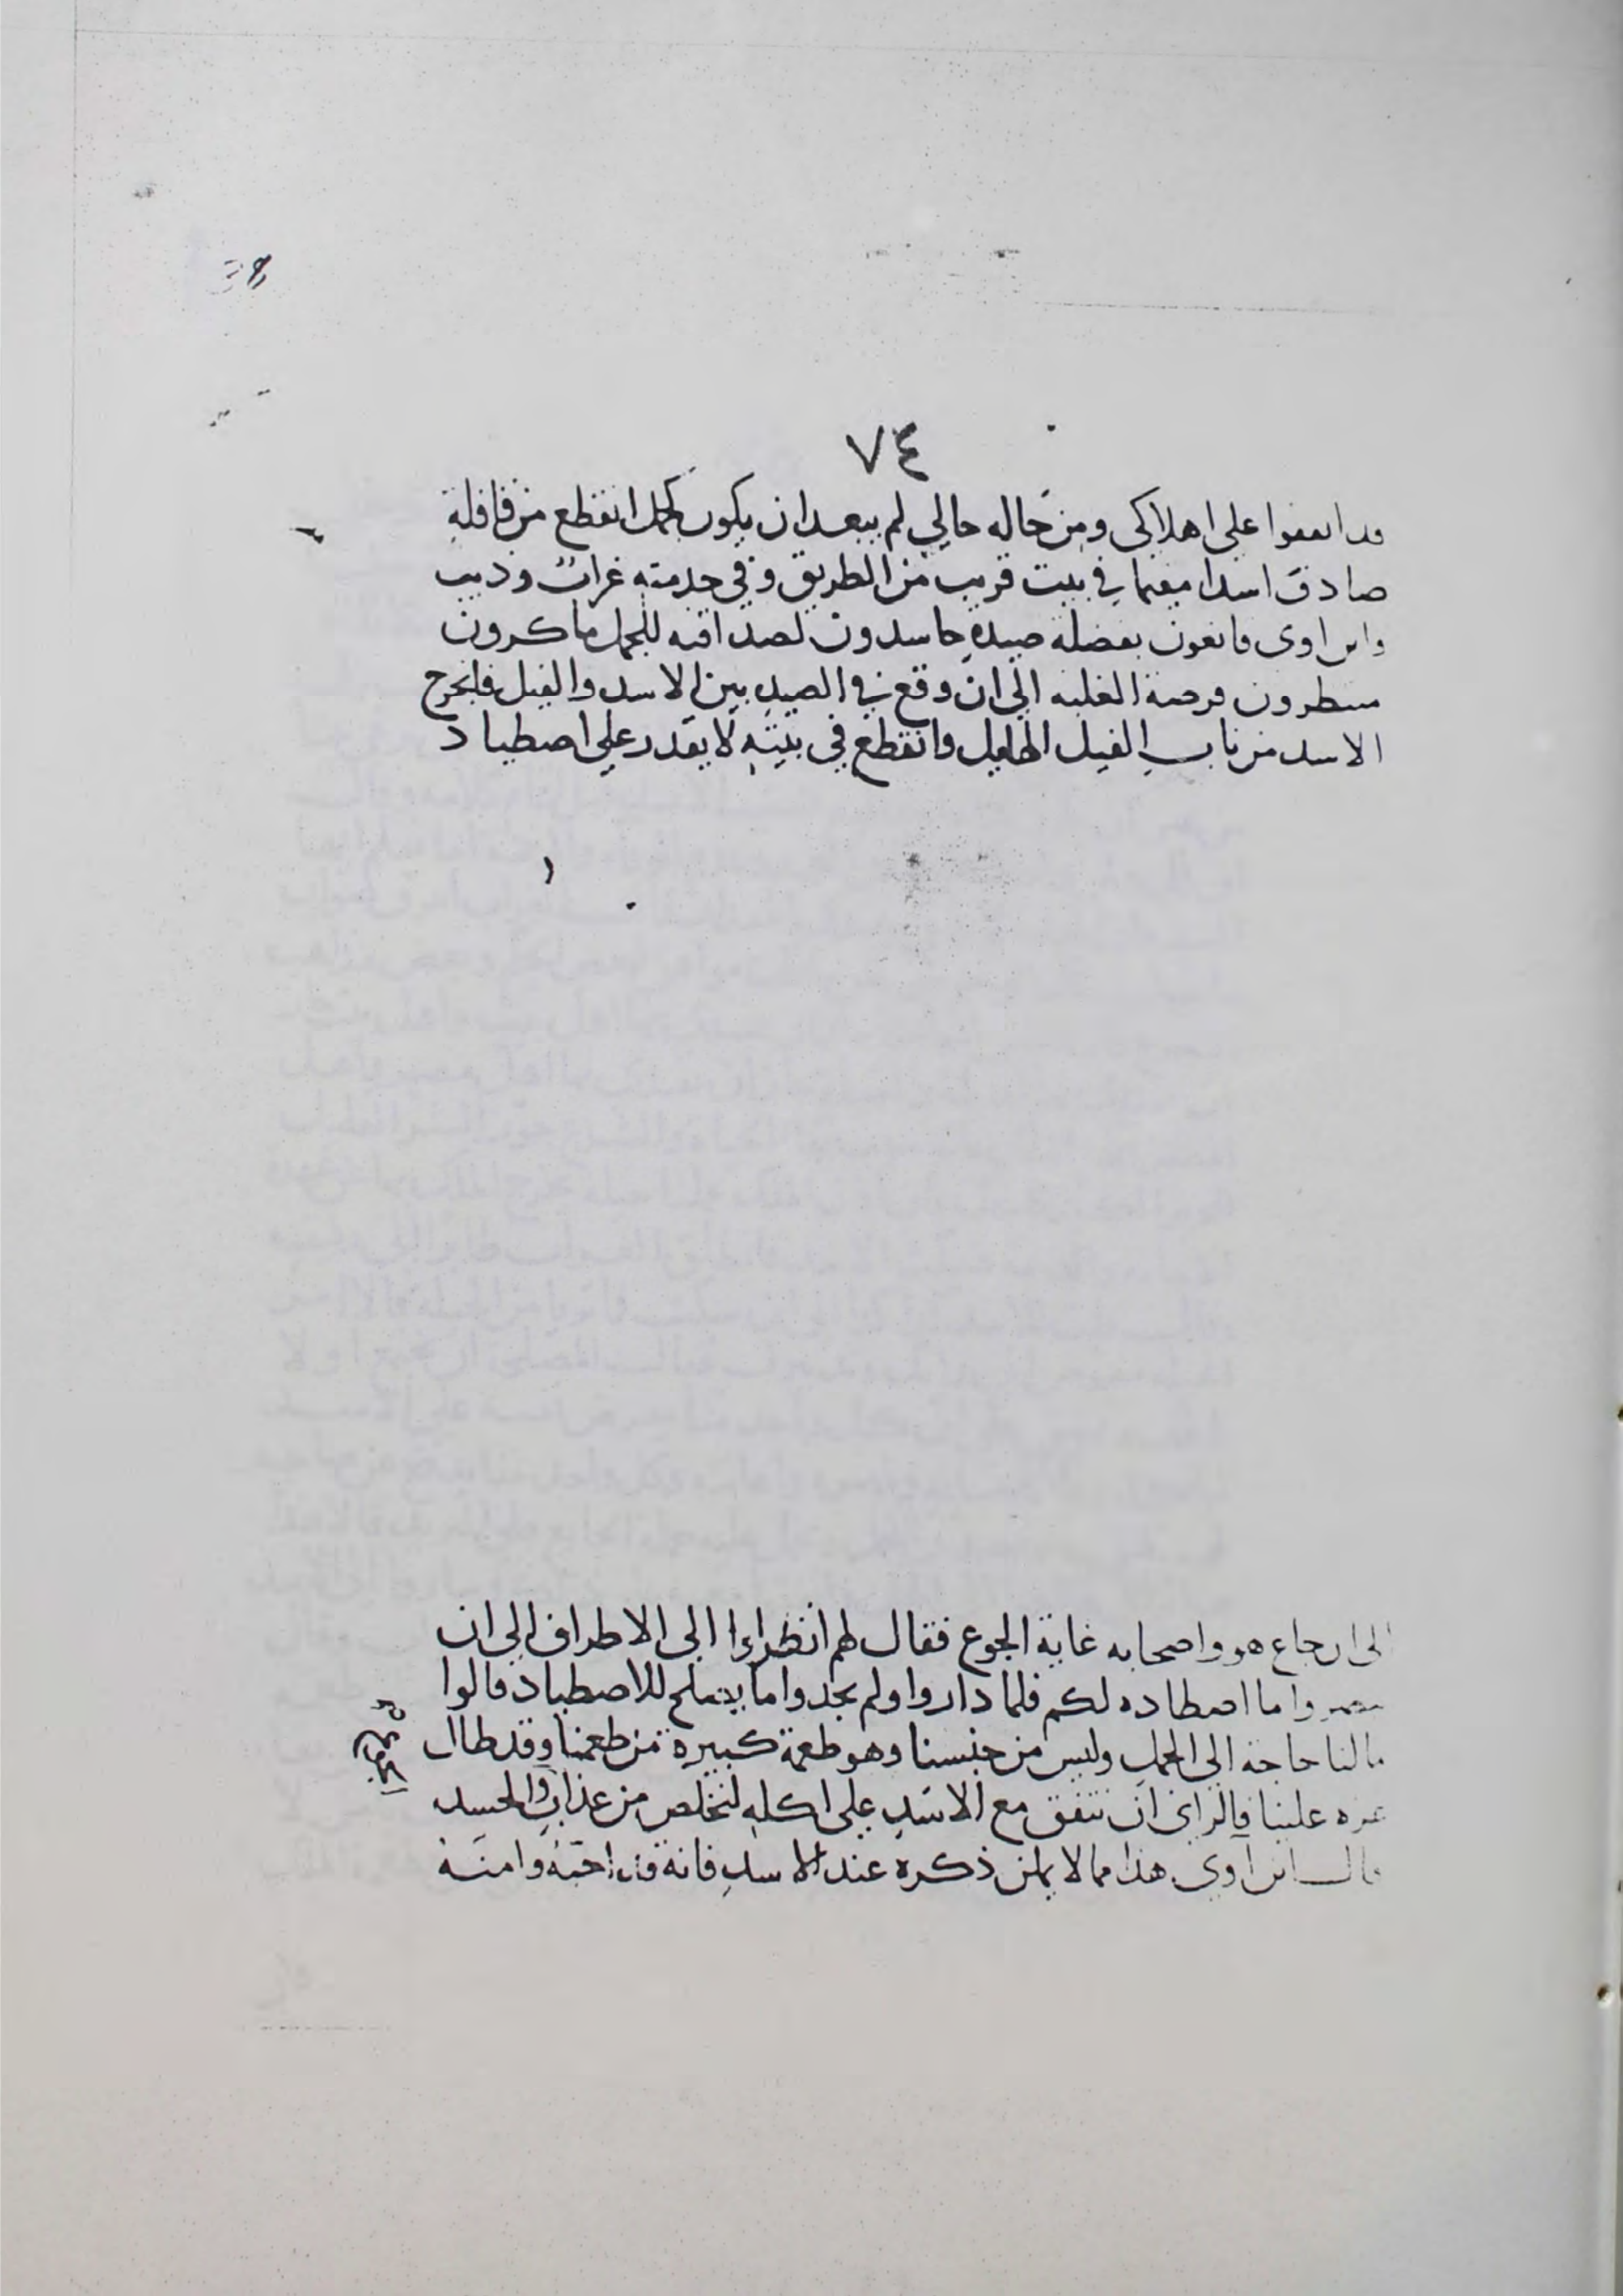 ٧٤
قد اتفقوا على اهلاكى ومن حاله حالي لم يبعد ان يكون كجمل انقطع من قافلة
صادق اسدا مقيما في بيت قريب من الطريق وفي خدمته غراب وذيب
وابن اوى قانعون بفضلة صيده حاسدون لصداقته للجمل ماكرون
منتظرون فرصة الغلبه الى ان وقع في الصيد بين الاسد والفيل فانجرح
الاسد من ناب الفيل الطويل وانقطع في بيته لا يقدر على اصطياد
الى ان جاع هو واصحابه غاية الجوع فقال لهم انظروا الى الاطراف الى ان
تبصروا ما اصطاده لكم فلما داروا ولم يجدوا ما يصلح للاصطياد قالوا
ما لنا حاجة الى الجمل وليس من جنسنا وهو طعمة كبيرة من طعمنا وقد طال
عزه علينا فالراى ان نتفق مع الاسد على اكله لنخلص من عذاب الحسد
قال ابن اوى هذا مما لا يمكن ذكره عند الاسد فانه قد احبه وامنه